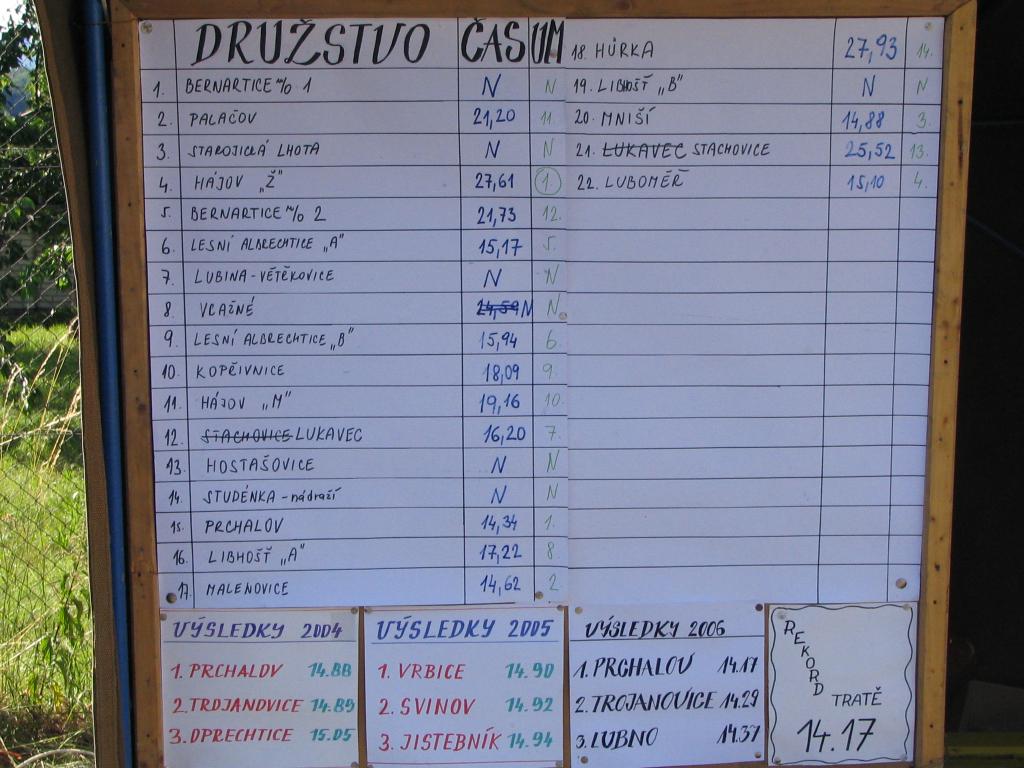 DRUŽSTVO ČAS UM
1. BERNARTICE n/O 1 N N
2. PALAČOV 21,20 11.
3. STAROJICKÁ LHOTA N N
4. HÁJOV „Ž" 27,61 1.
5. BERNARTICE n/O 2 21,73 12.
6. LESNÍ ALBRECHTICE „A" 15,17 5.
7. LUBINA - VĚTŘKOVICE N N
8 VLAŽNÉ 24,59 N N
9. LESNÍ ALBRECHTICE „B" 15,94 6.
10. KOPŘIVNICE 18,09 9.
11. HÁJOV „M" 19,16 10.
12. STACHOVICE LUKAVEC 16,20 7.
13. HOSTAŠOVICE N N
14. STUDÉNKA - nádraží N N
15. PRCHALOV 14,34 1.
16. LIBHOŠŤ „A" 17,22 8.
17. MALENOVICE 14,62 2.
18. HŮRKA 27,93 14.
19. LIBHOŠŤ „B" N N
20. MNIŠÍ 14,88 3.
21. LUKAVEC STACHOVICE 25,52 13.
22. LUBOMĚŘ 15,10 4.
VÝSLEDKY 2004
1. PRCHALOV 14.88
2. TROJANOVICE 14.89
3. OPRECHTICE 15.05
VÝSLEDKY 2005
1. VRBICE 14.90
2. SVINOV 14.92
3. JISTEBNÍK 14.94
VÝSLEDKY 2006
1. PRCHALOV 14.17
2. TROJANOVICE 14.29
3. LUBNO 14.37
REKORD
TRATĚ
14.17